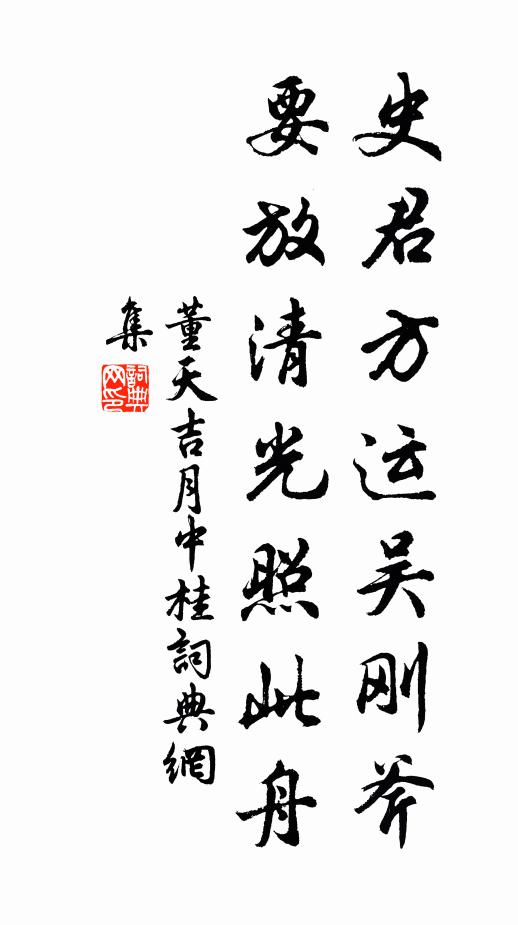 史君方运吴刚斧
要放清光照此舟
董天吉月中桂詞典網
集
詞典
网印